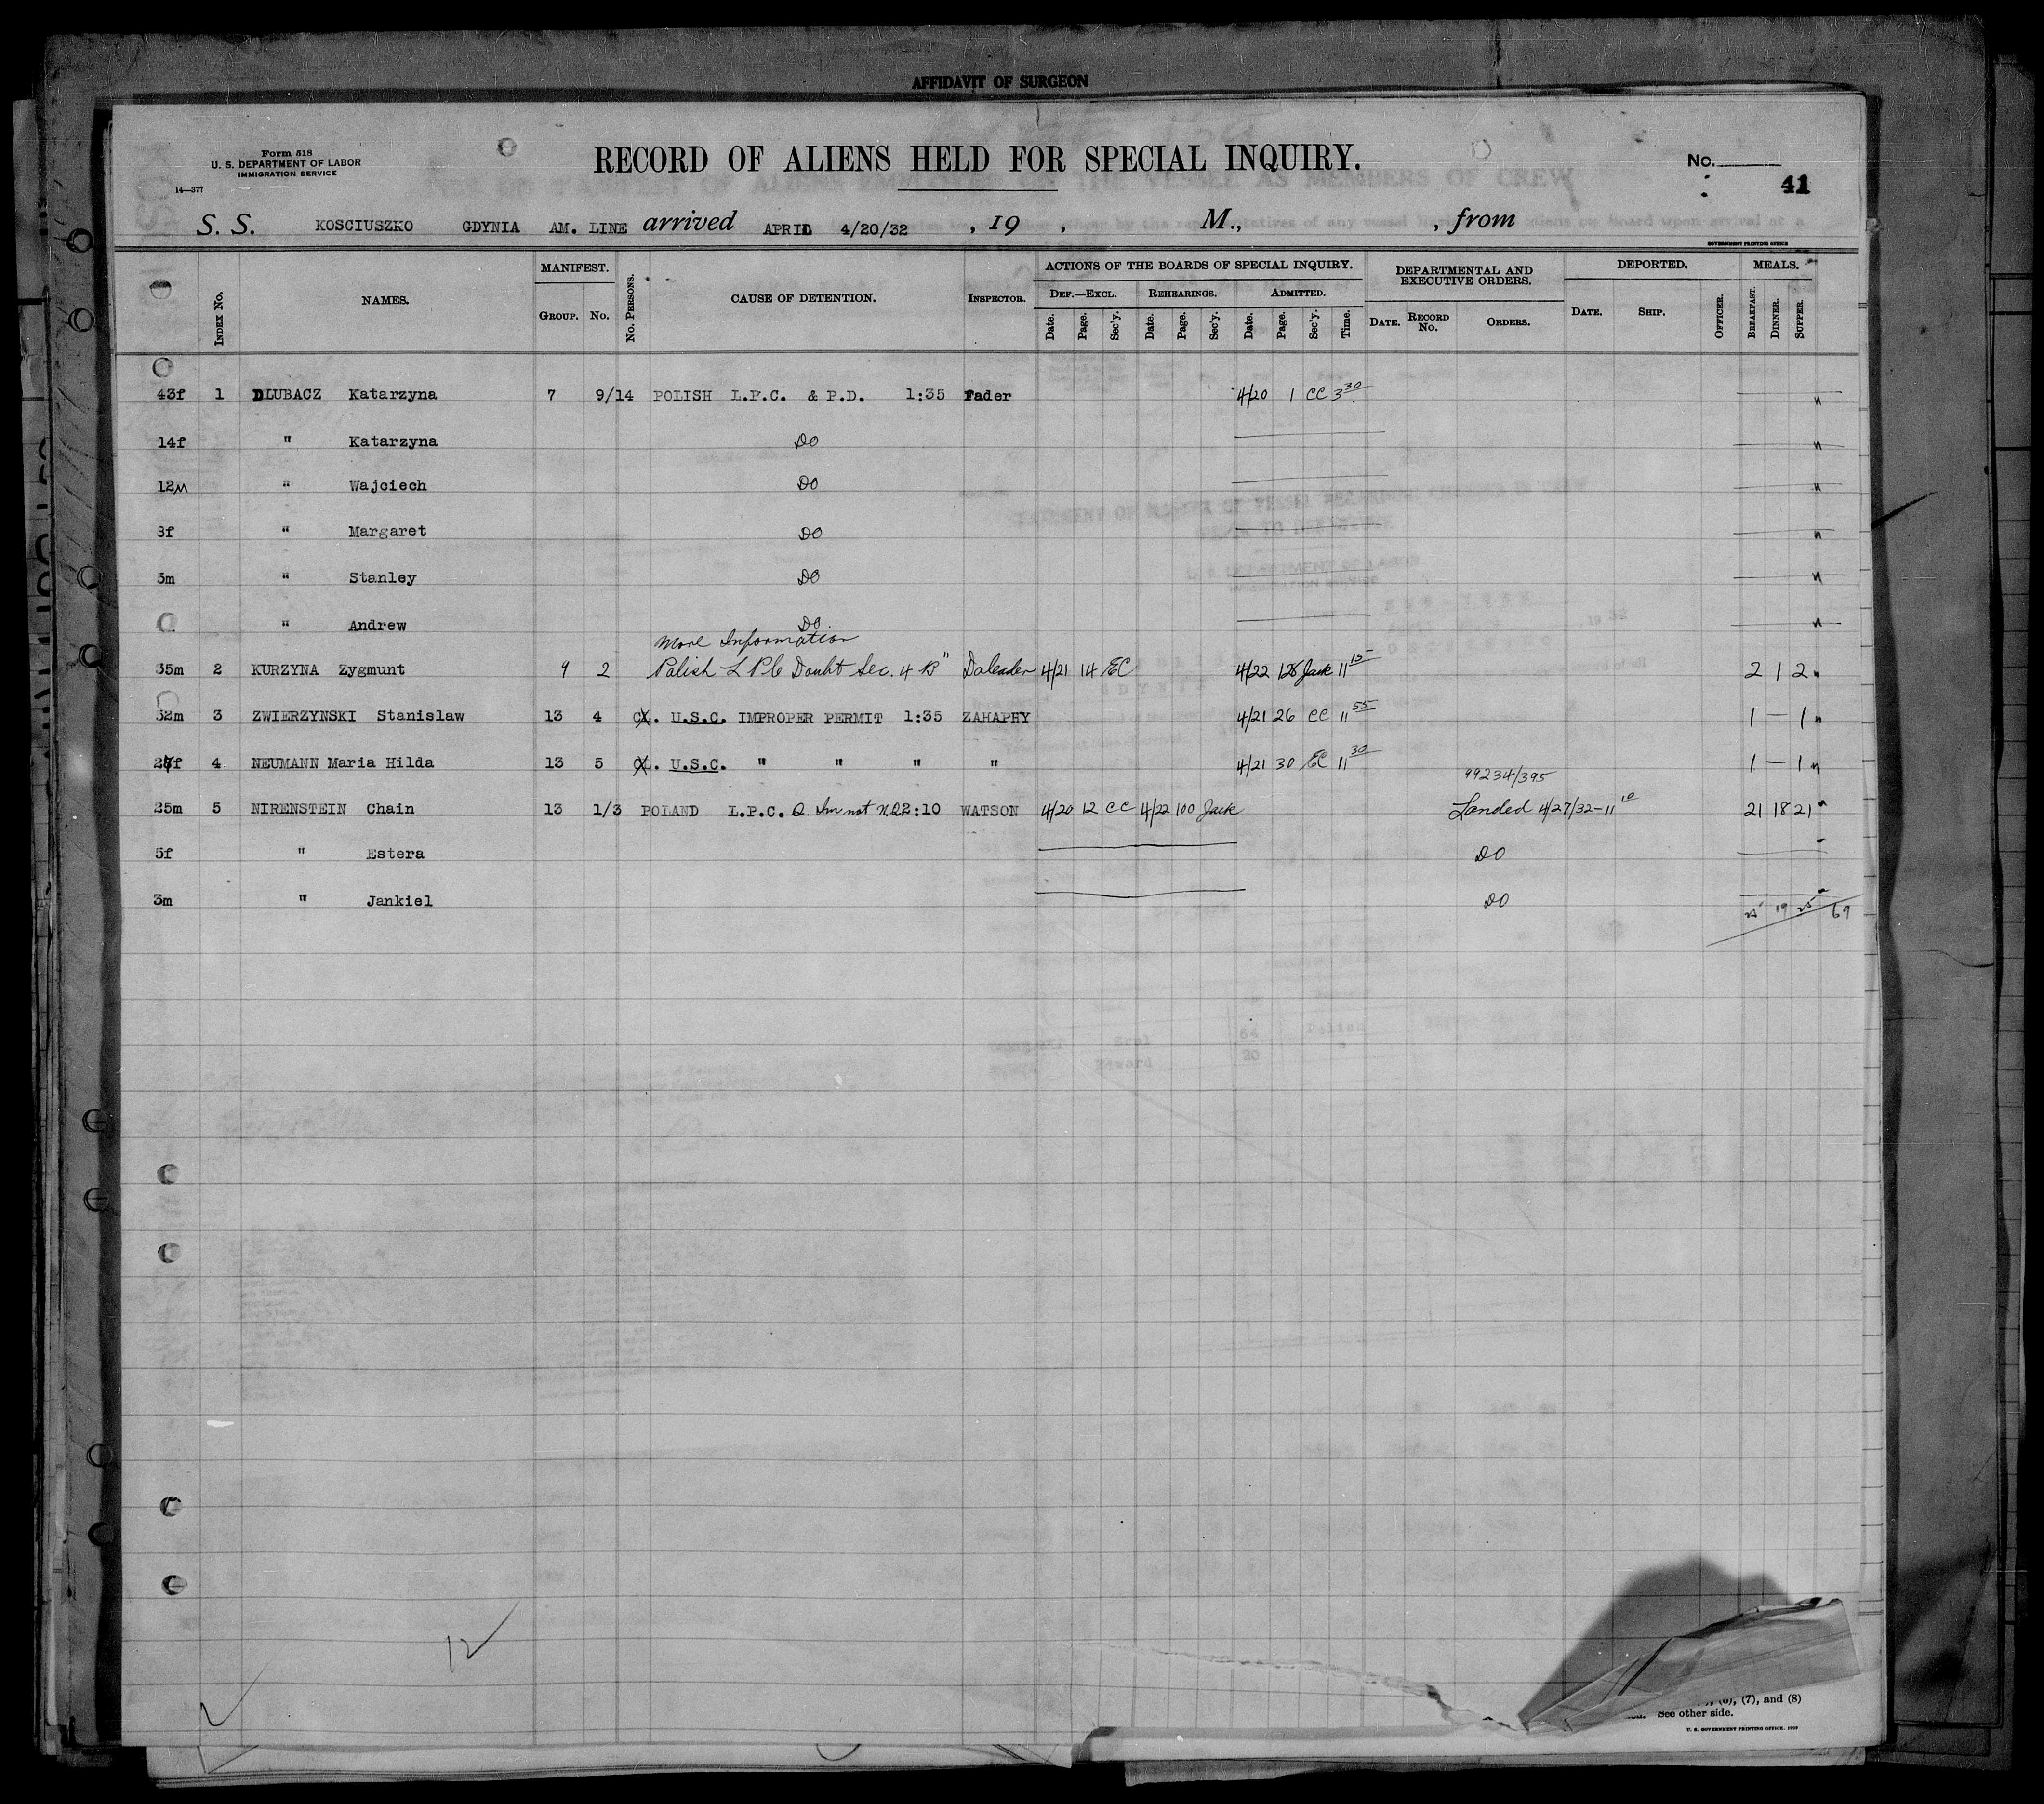 AFFIDAVIT OF SURGEON
Form 518
U. S. DEPARTMENT OF LABOR
IMMIGRATION SERVICE
14—377
RECORD OF ALIENS HELD FOR SPECIAL INQUIRY.
No.
41
S. S. KOSCIUSZKO GDYNIA AM. LINE arrived APRIL 4/20/32 , 19 , M., , from
GOVERNMENT PRINTING OFFICE
INDEX No. NAMES. MANIFEST. GROUP. No. No. PERSONS. CAUSE OF DETENTION. INSPECTOR. ACTIONS OF THE BOARDS OF SPECIAL INQUIRY. DEPARTMENTAL AND EXECUTIVE ORDERS. DEPORTED. MEALS.
DEF.—EXCL. REHEARINGS. ADMITTED.
Date. Page. Sec'y. Date. Page. Sec'y. Date. Page. Sec'y. Time. DATE. RECORD No. ORDERS. DATE. SHIP. OFFICER. BREAKFAST. DINNER. SUPPER.
43f 1 DLUBACZ Katarzyna 7 9/14 POLISH L.P.C. & P.D. 1:35 Fader 4/20 1 CC 3 30
14f " Katarzyna DO
12M " Wajciech DO
8f " Margaret DO
5m " Stanley DO
" Andrew DO
More Information
35m 2 KURZYNA Zygmunt 9 2 Polish L P C Doubt Sec. 4 B" 4/21 14 EC 4/22 128 Jack 11 15 2 1 2
32m 3 ZWIERZYNSKI Stanislaw 13 4 U.S.C. IMPROPER PERMIT 1:35 ZAHAPHY 4/21 26 CC 11 55 1 — 1
4 NEUMANN Maria Hilda 13 5 U.S.C. " " " " 4/21 30 EC 11 30 1 — 1
99234/395
25m 5 NIRENSTEIN Chain 13 1/3 POLAND L.P.C. 2:10 WATSON 4/20 12 CC 4/22 100 Jack Landed 4/27/32-11 10 21 18 21
5f " Estera DO
3m " Jankiel DO
25 19 25 69
12
(7), and (8)
See other side.
U. S. GOVERNMENT PRINTING OFFICE.